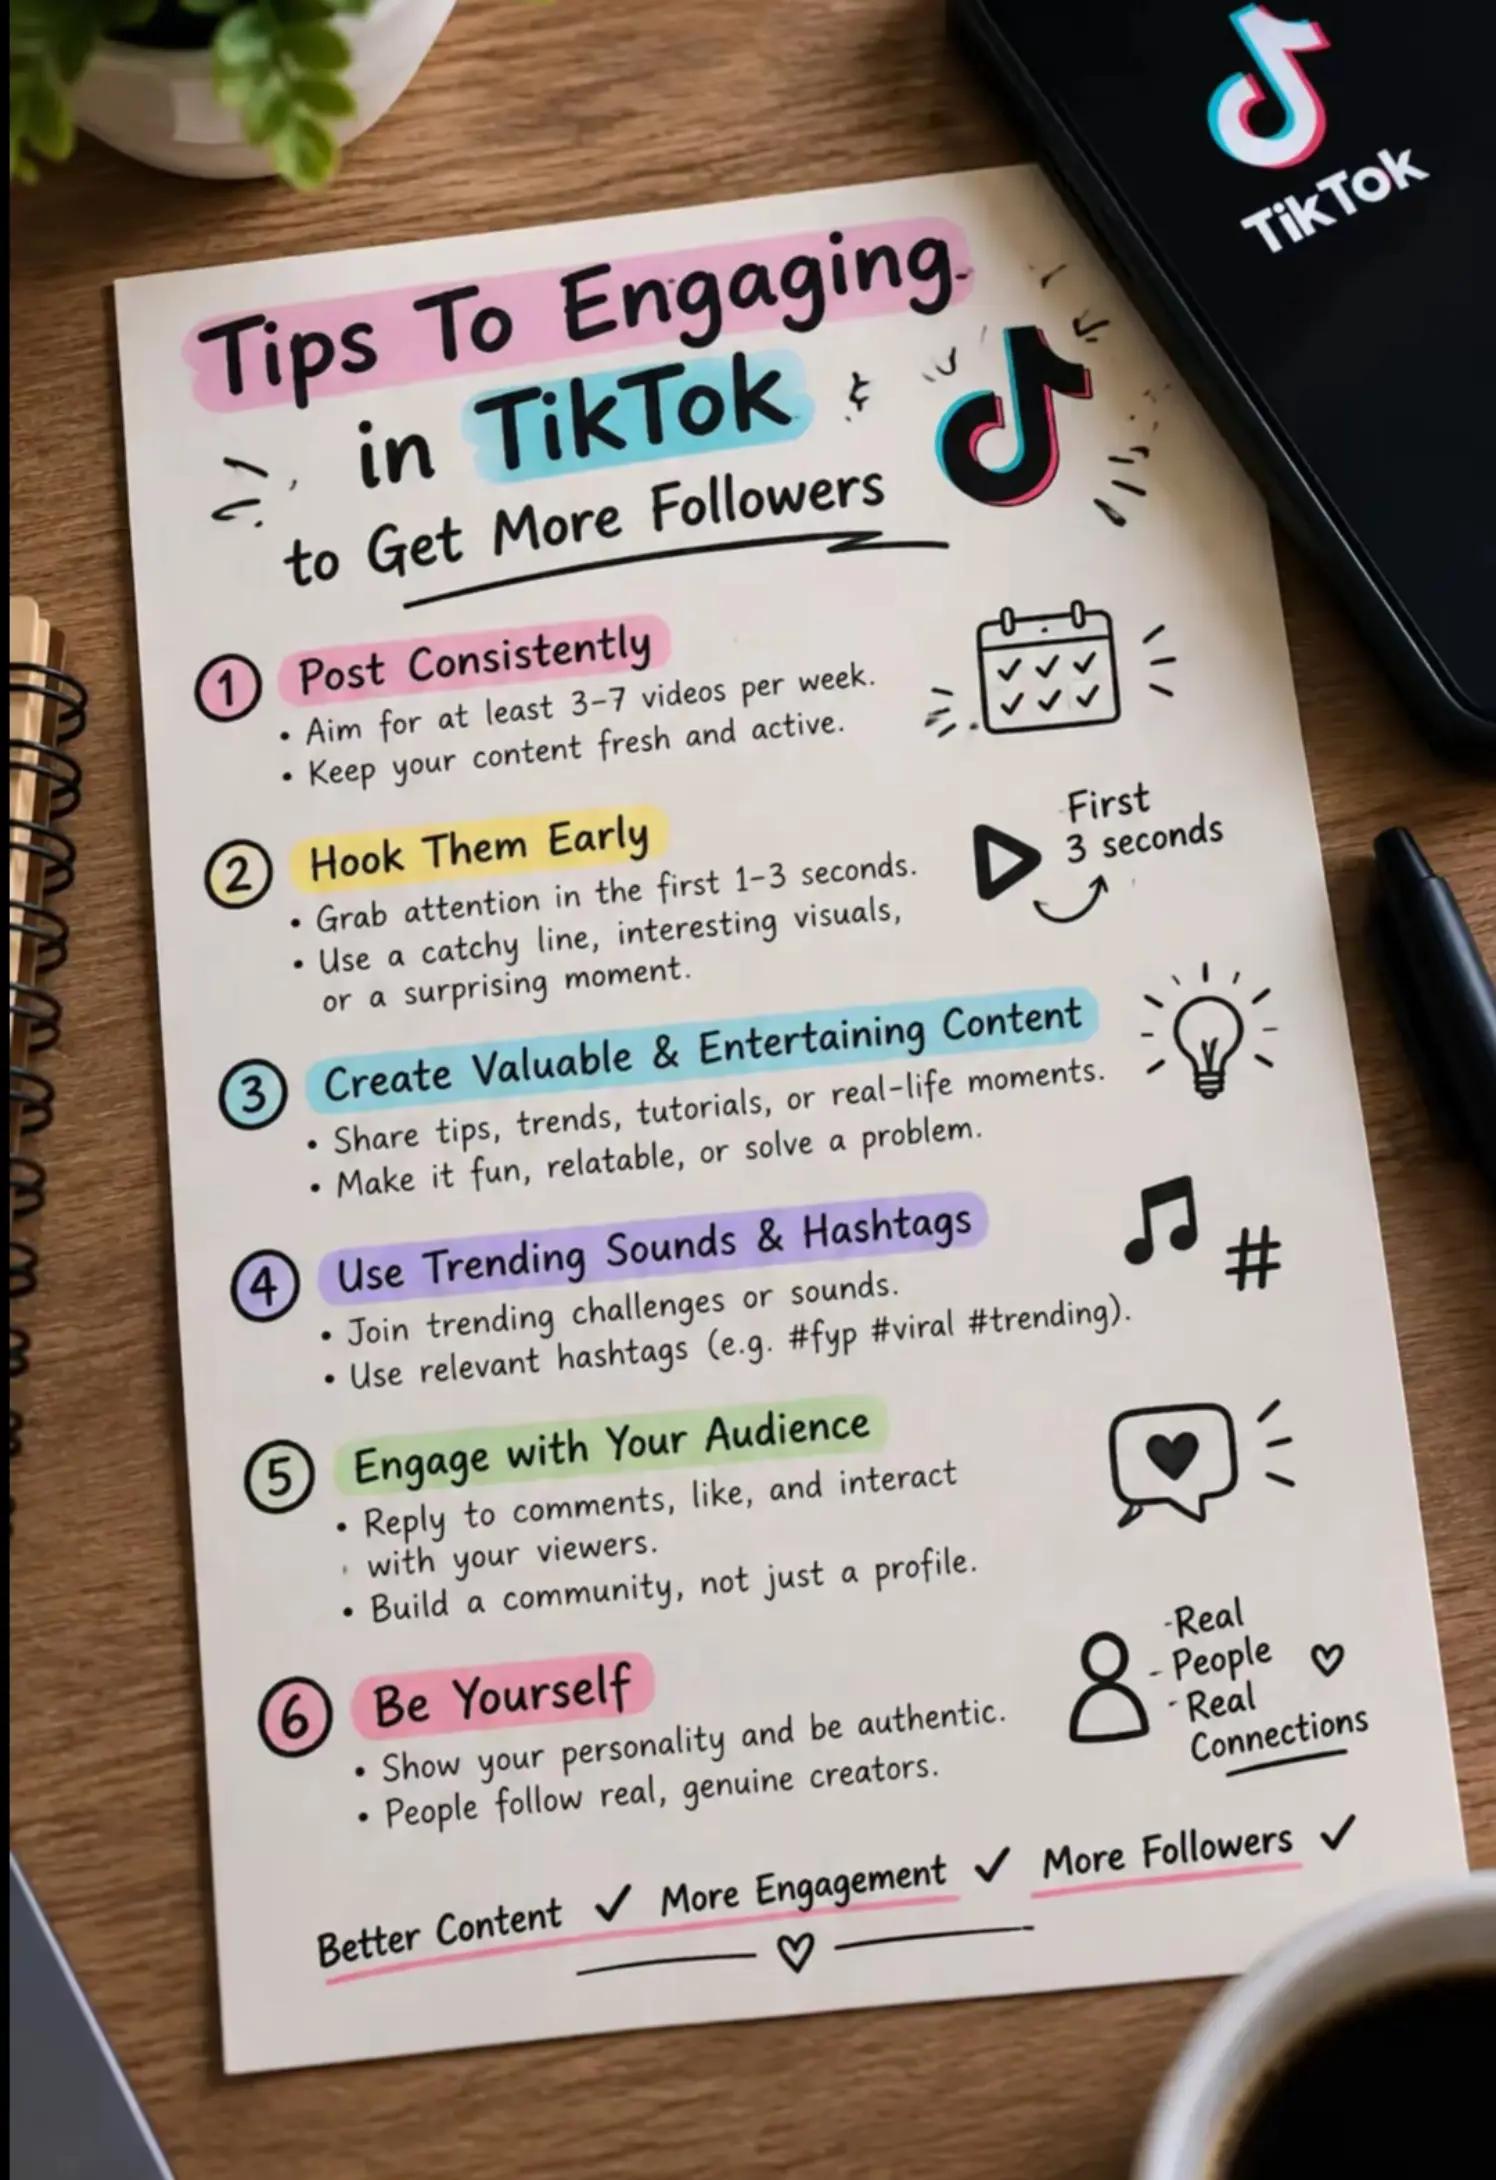 TikTok
Tips To Engaging
in TikTok
to Get More Followers
1 Post Consistently
• Aim for at least 3-7 videos per week.
• Keep your content fresh and active.
2 Hook Them Early
• Grab attention in the first 1-3 seconds.
• Use a catchy line, interesting visuals,
or a surprising moment.
First
3 seconds
3 Create Valuable & Entertaining Content
• Share tips, trends, tutorials, or real-life moments.
• Make it fun, relatable, or solve a problem.
4 Use Trending Sounds & Hashtags
• Join trending challenges or sounds.
• Use relevant hashtags (e.g. #fyp #viral #trending).
#
5 Engage with Your Audience
• Reply to comments, like, and interact
with your viewers.
• Build a community, not just a profile.
6 Be Yourself
• Show your personality and be authentic.
• People follow real, genuine creators.
-Real
- People
- Real
Connections
Better Content ✓ More Engagement ✓ More Followers ✓